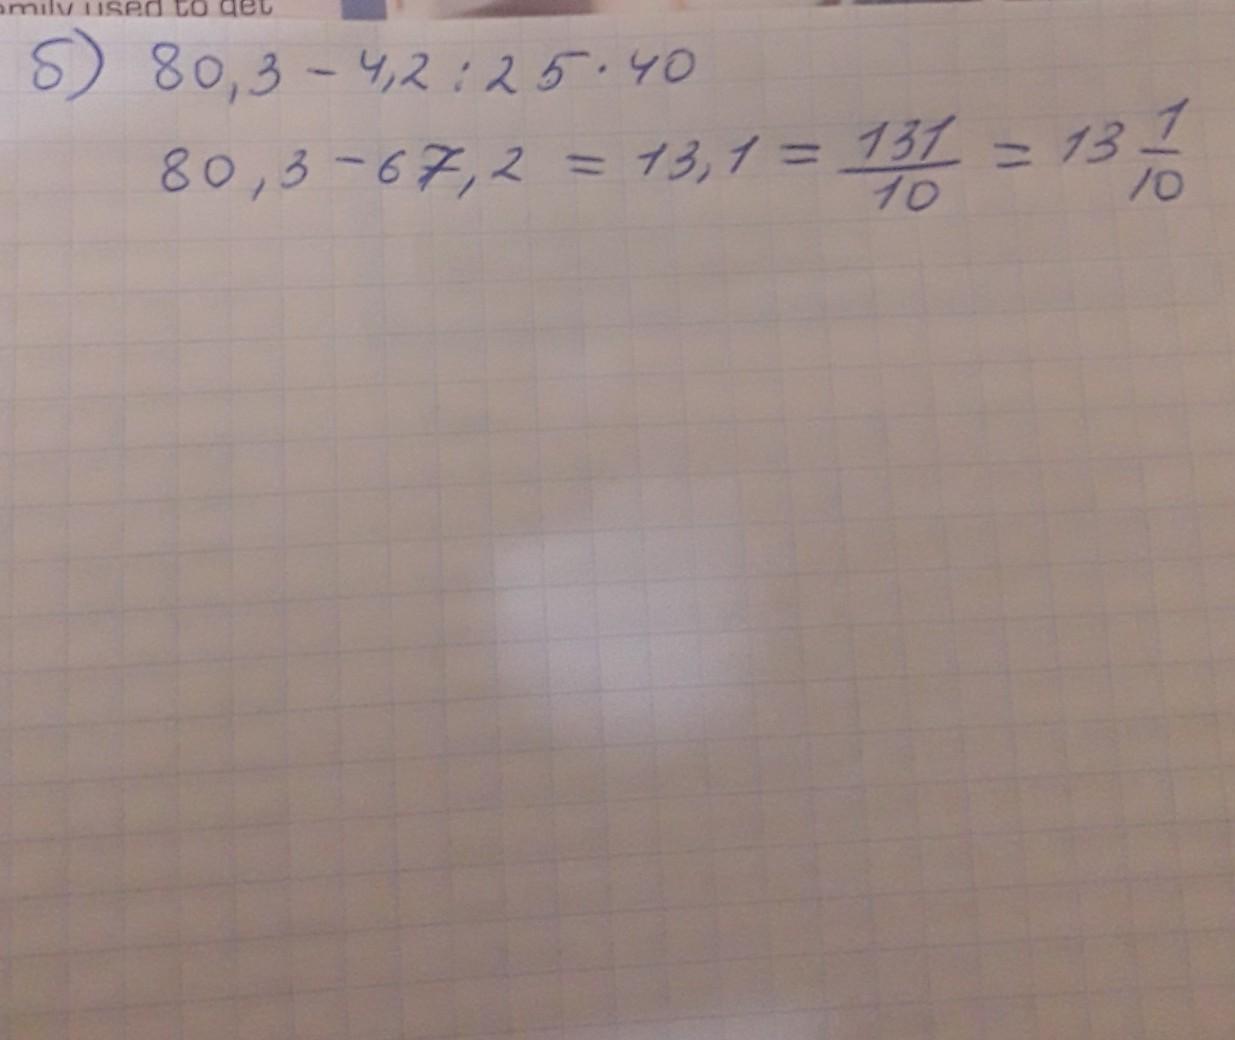 mily used to get
б) 80,3 - 4,2 : 25 · 40
80,3 - 67,2 = 13,1 = 131/10 = 13 1/10